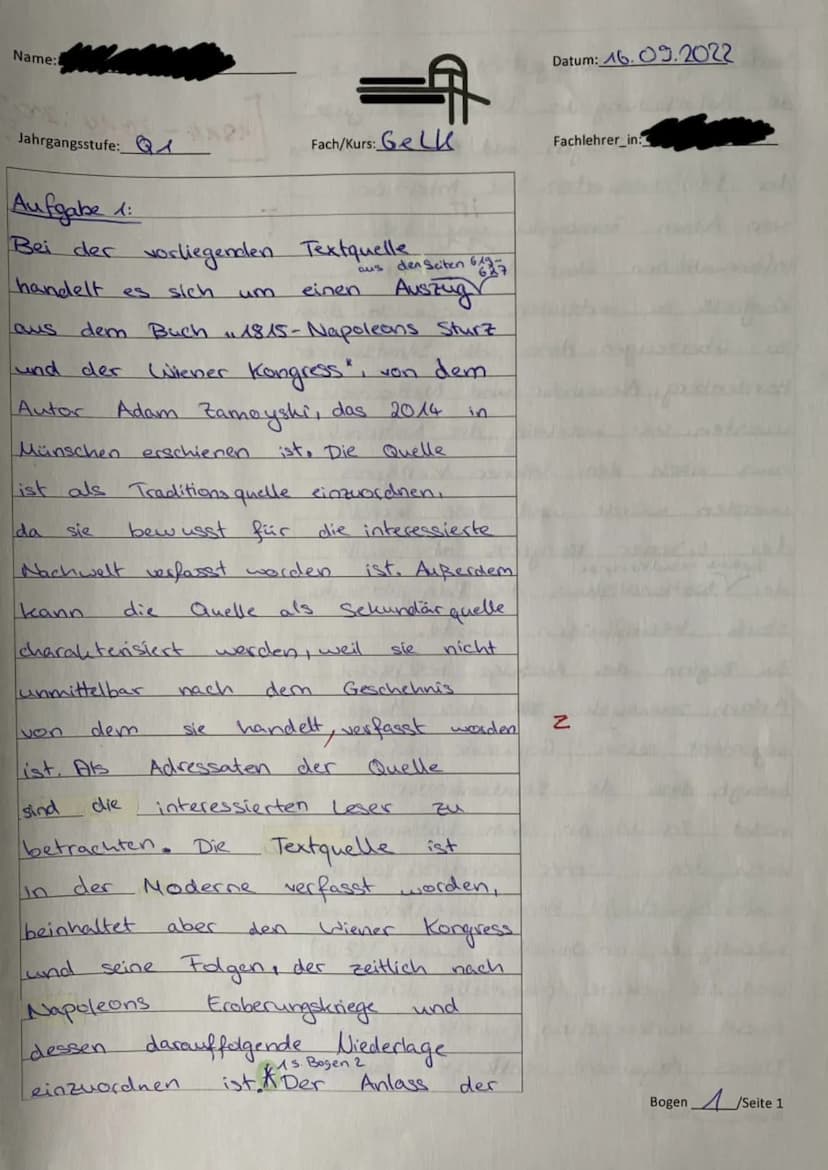 Name:
Datum: 16.09.2022
Jahrgangsstufe: Q1
Fach/Kurs: GeLK
Fachlehrer_in:
Aufgabe 1:
Bei der vorliegenden Textquelle
aus den Seiten 619-
627
handelt es sich um einen Auszug
aus dem Buch „1815-Napoleons Sturz
und der Wiener Kongress", von dem
Autor Adam Zamoyski, das 2014 in
Münschen erschienen ist. Die Quelle
ist als Traditionsquelle einzuordnen,
da sie bewusst für die interessierte
Nachwelt verfasst worden ist. Außerdem
kann die Quelle als Sekundärquelle
charakterisiert werden, weil sie nicht
unmittelbar nach dem Geschehnis
von dem sie handelt, verfasst worden
Z
ist. Als Adressaten der Quelle
sind die interessierten Leser zu
betrachten. Die Textquelle ist
in der Moderne verfasst worden,
beinhaltet aber den Wiener Kongress
und seine Folgen, der zeitlich nach
Napoleons Eroberungskriege und
dessen darauffolgende Niederlage
*1 s. Bogen 2
einzuordnen ist. Der Anlass der
Bogen 1 /Seite 1